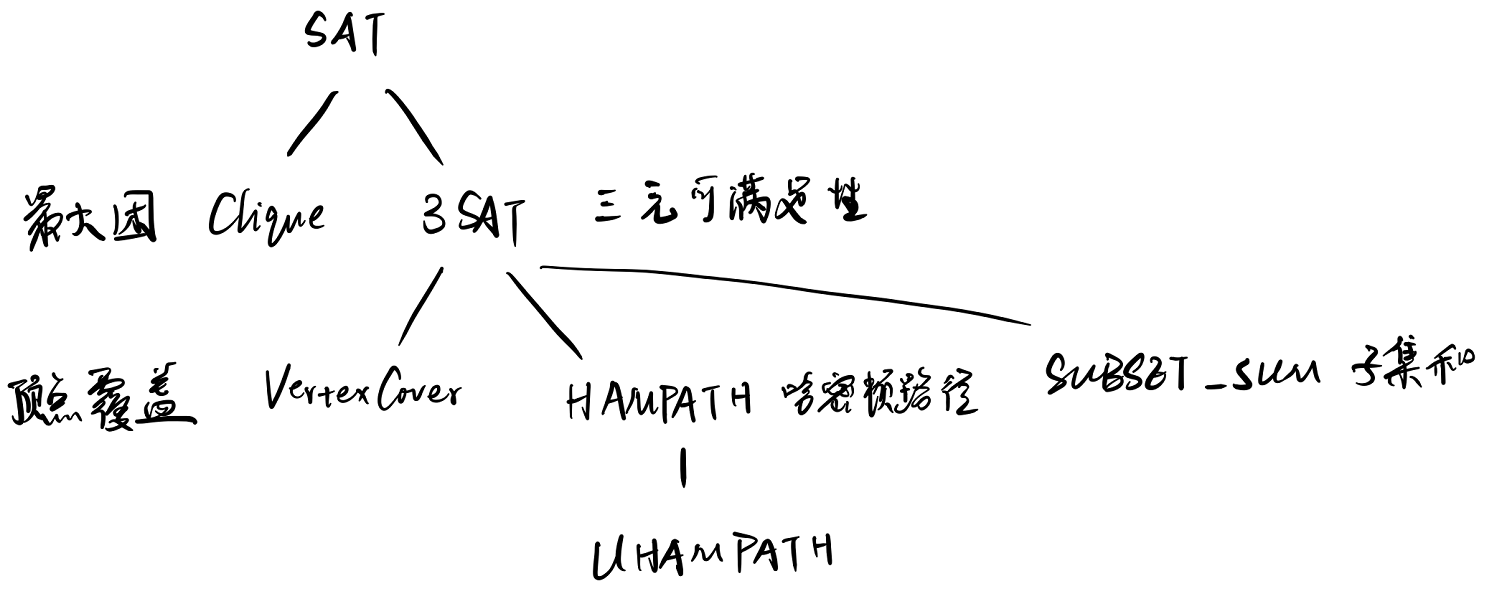 SAT
最大团 Clique 3SAT 三元可满足性
顶点覆盖 VertexCover HAMPATH 哈密顿路径 SUBSET_SUM 子集和
UHAMPATH